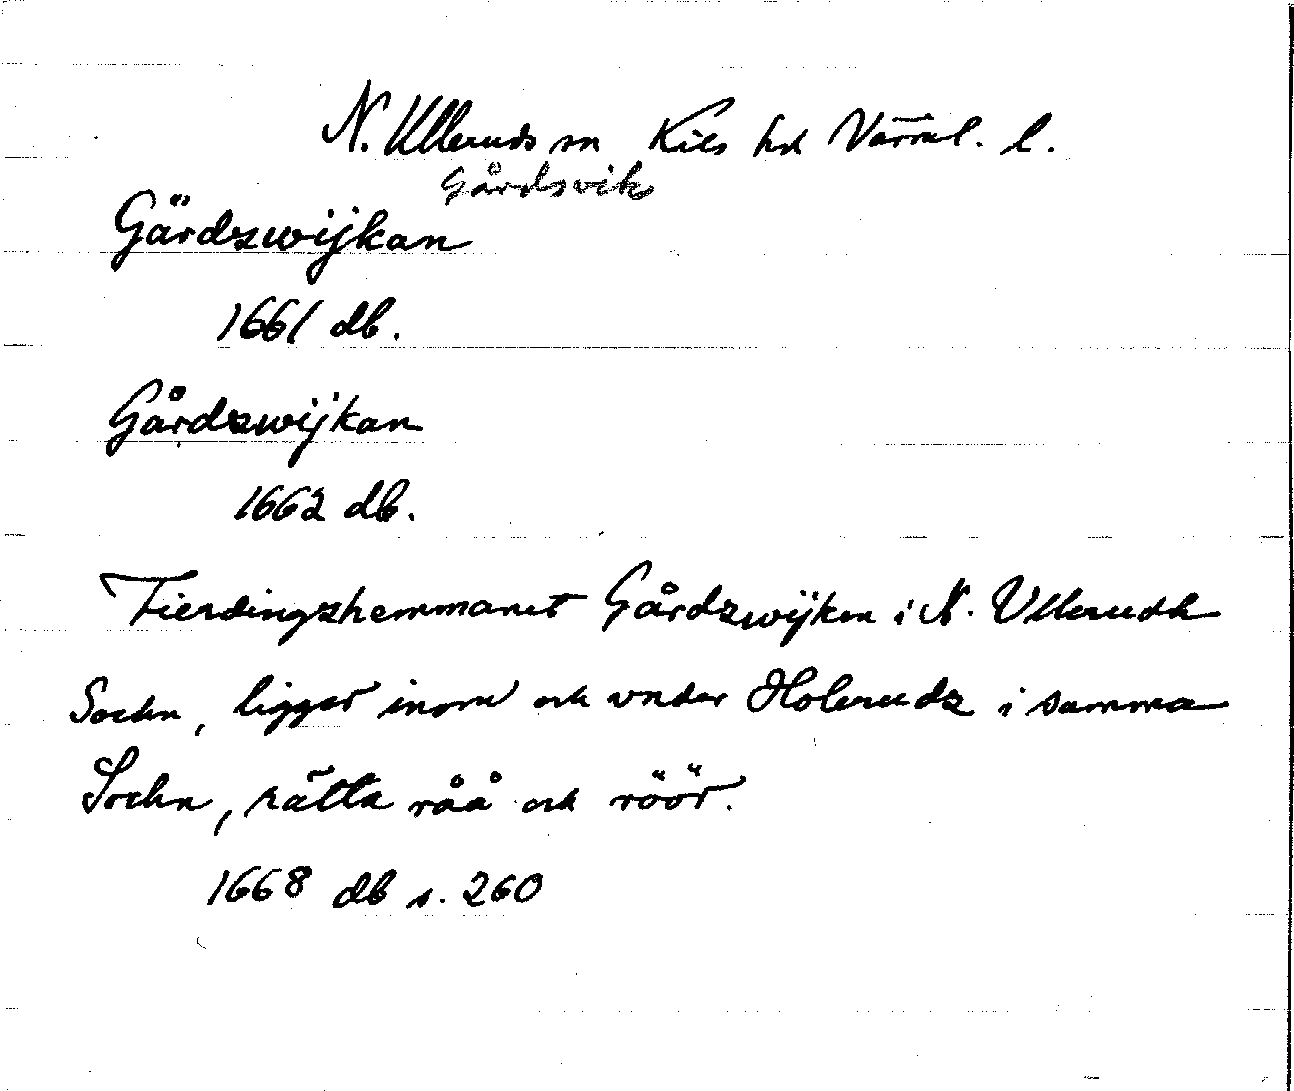 N. Ulleruds sn Kils hd Värml. l.
Gårdsvik
Gärdzwijkan
1661 db.
Gårdzwijkan
1662 db.
Fierdingzhemmanet Gårdzwijken i N. Ullerudh
Sochn, ligger inom och vnder Holerudz i samma
Sochn, rätta råå och röör.
1668 db s. 260